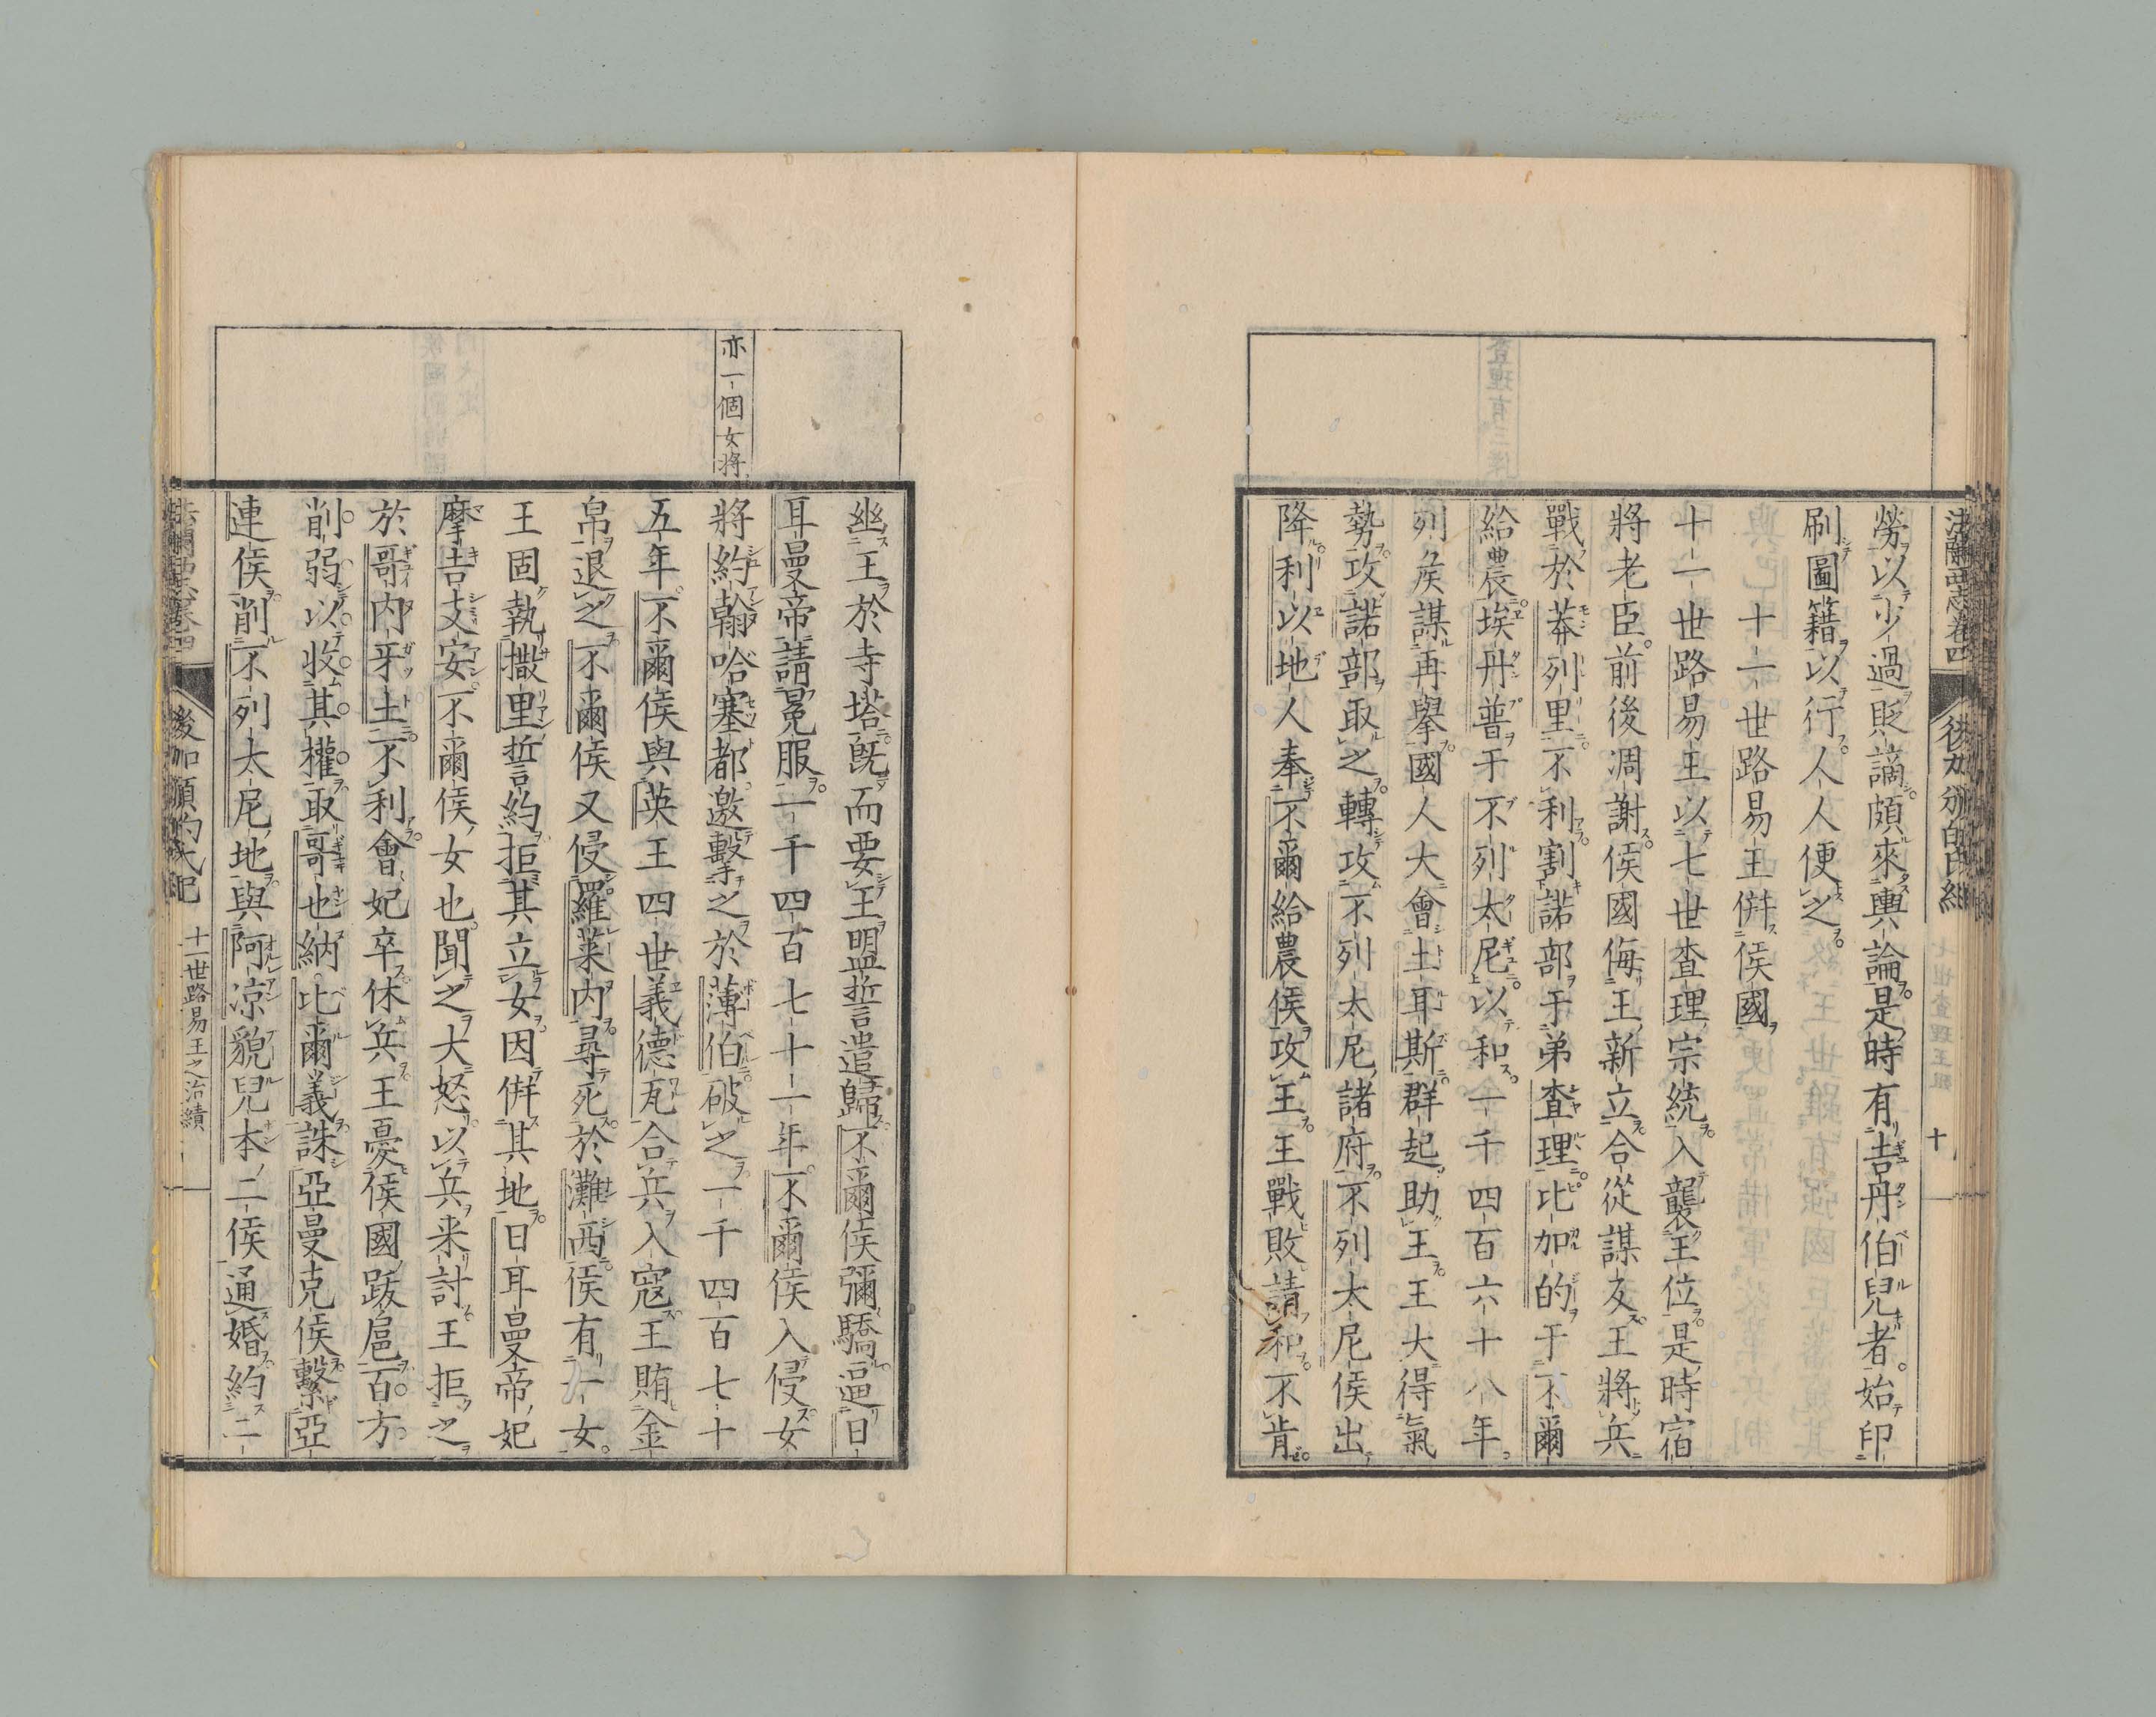 法蘭西志卷四
十
勞以少過貶謫頗來輿論是時有吉丹伯兒者始印
刷圖籍以行人人便之
十一世路易王併侯國
十一世路易王以七世查理宗統入襲王位是時宿
將老臣前後凋謝侯國侮王新立合從謀反王將兵
戰於莽列里不利割諾部于弟查理比加的于不爾
給農埃丹普于不列太尼以和一千四百六十八年
列侯謀再擧國人大會土耳斯群起助王王大得氣
勢攻諾部取之轉攻不列太尼諸府不列太尼侯出
降利以地人奉不爾給農侯攻王王戰敗請和不肯
亦一個女將
幽王於寺塔旣而要王盟誓遣歸不爾侯彌驕逼日
耳曼帝請冕服一千四百七十一年不爾侯入侵女
將約翰哈塞都邀擊之於薄伯破之一千四百七十
五年不爾侯與英王四世義德瓦合兵入寇王賄金
帛退之不爾侯又侵羅萊内尋死於灘西侯有一女
王固執撒里誓約拒其立女因併其地日耳曼帝妃
摩吉支安不爾侯女也聞之大怒以兵来討王拒之
於哥内牙土不利會妃卒休兵王憂侯國跋扈百方
削弱以收其權取哥也納比爾義誅亞曼克侯繫亞
連侯削不列太尼地與阿凉貌兒本二侯通婚約二
後加頗的氏紀
十一世路易王之治績